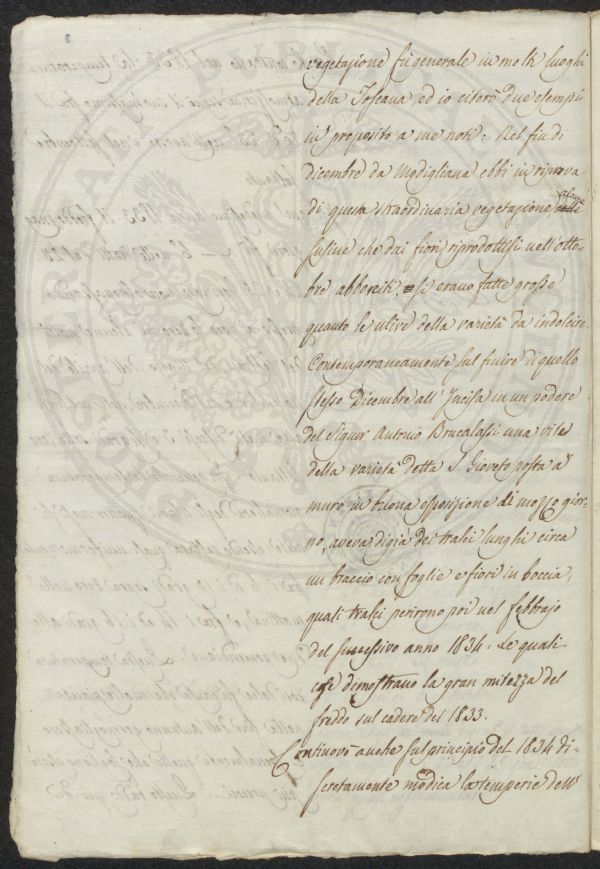 vegetazione fu generale in molti luoghi
della Toscana, ed io citerò due esempi
in proposito a me noti: Nel fin di
dicembre da Modigliana ebbi in riprova
di questa straordinaria vegetazione alcune
susine che dai fiori riprodottisi nell'otto-
bre abboniti, si erano fatte grosse
quanto le ulive della varietà da indolcire.
Contemporaneamente sul finire di quello
stesso Dicembre all'Incisa in un podere
del Signor Antonio Brucalassi una vite
della varietà detta S. Gioveto posta a
muro, in buona esposizione di mezzo gior-
no, aveva digià dei tralci lunghi circa
un braccio con foglie e fiori in boccia,
quali tralci perirono poi nel febbrajo
del successivo anno 1834: Le quali
cose dimostrano la gran mitezza del
freddo sul cadere del 1833.
Continovò anche sul principio del 1834 di-
scretamente modica la temperie dell'